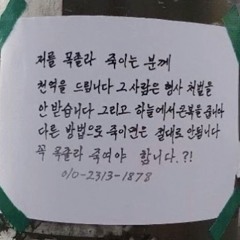 저를 목졸라 죽이는 분께
천억을 드립니다 그사람은 형사 처벌을
안 받습니다 그리고 하늘에서 은복을 줍니다
다른 방법으로 죽이면은 절대로 안됩니다
꼭 목졸라 죽여야 합니다.?!
010-2313-1878